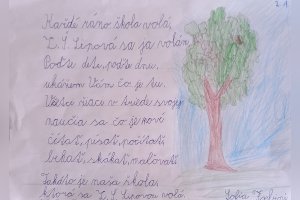 2.A
Každé ráno škola volá,
Z. Š. Lipová sa ja volám.
Poďte deti, poďte dnu,
ukážem Vám čo je tu.
Všetci žiaci v triede svojej
naučia sa čo je nové
čítať, písať, počítať,
behať, skákať, maľovať.
Takáto je naša škola,
ktorá sa Z. Š. Lipová volá.
Sofia